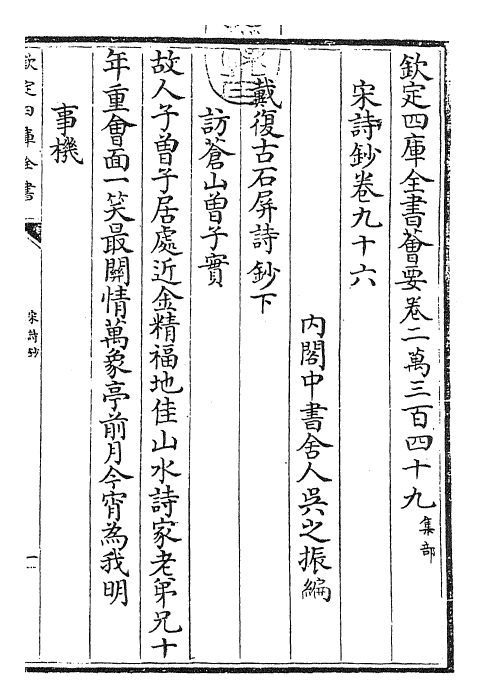 欽定四庫全書薈要卷二萬三百四十九 集部
宋詩鈔卷九十六
內閣中書舍人吳之振編
戴復古石屏詩鈔下
訪蒼山曾子實
故人子曾子居處近金精福地佳山水詩家老弟兄十
年重會面一笑最關情萬象亭前月今宵為我明
事機
欽定四庫全書
宋詩鈔
一